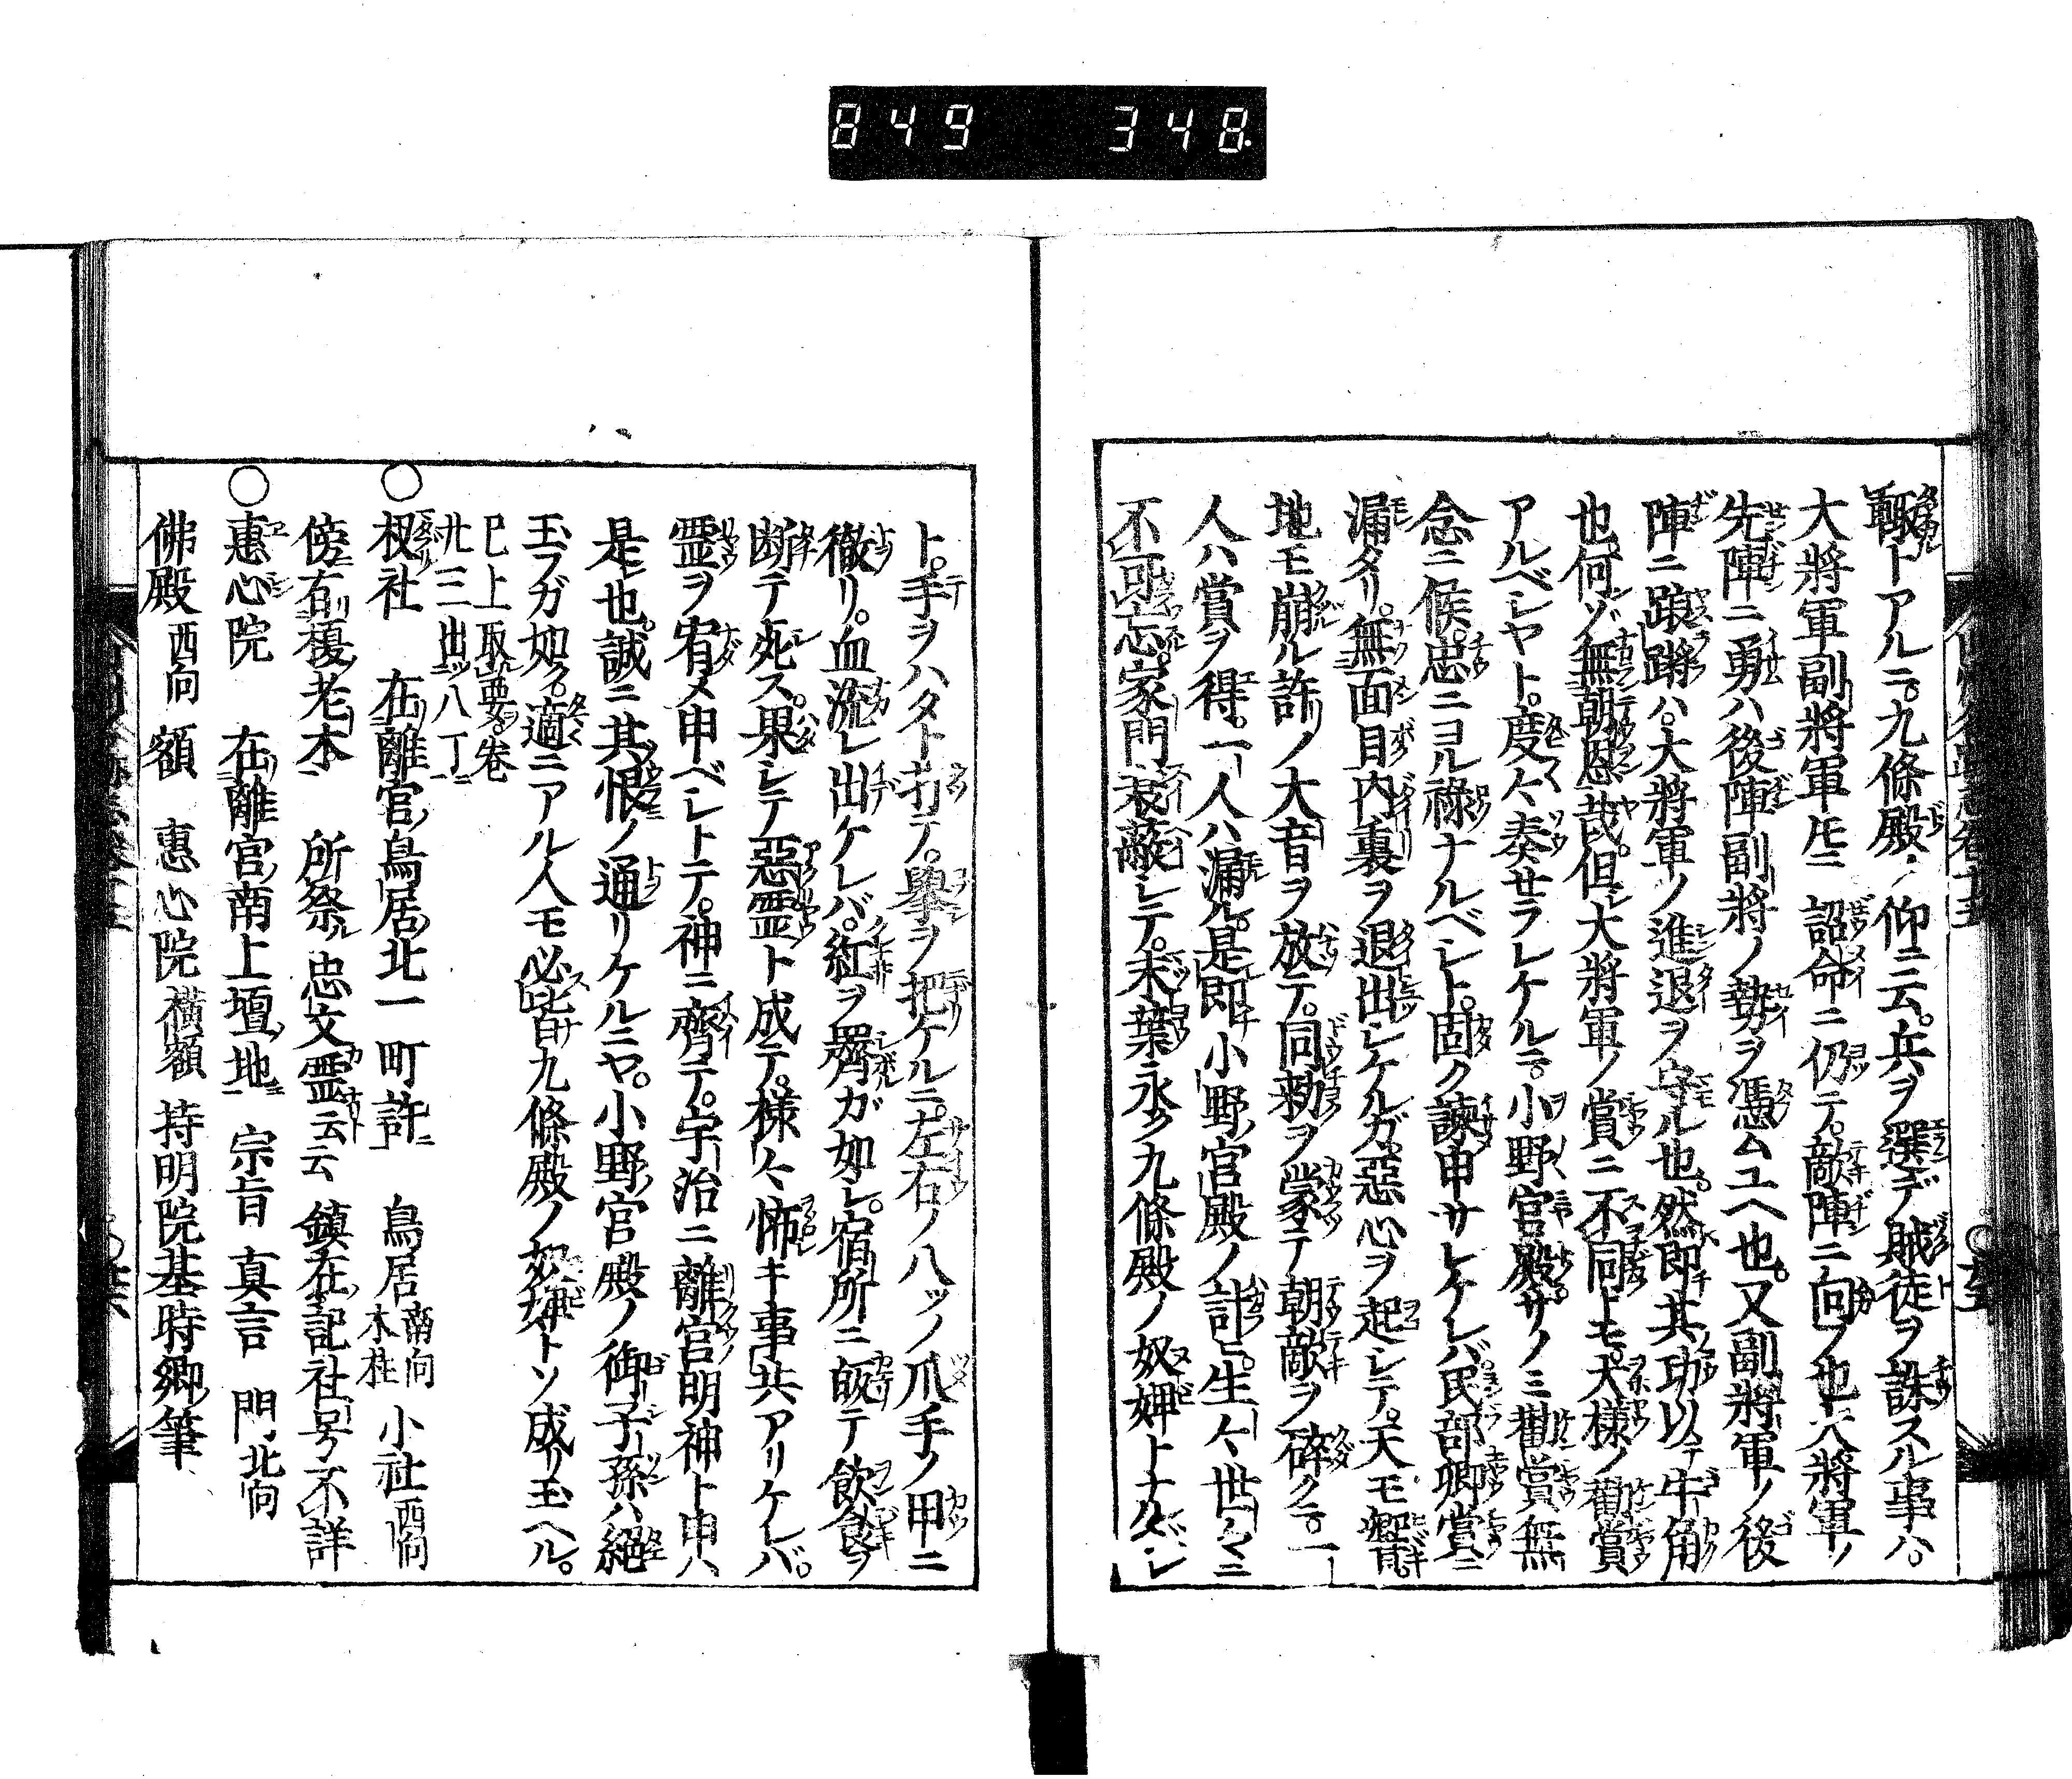 849 348.
輙トアルニ。九條殿ノ仰ニ云。兵ヲ選デ賊徒ヲ誅スル事ハ。
大將軍副將軍トモニ詔命ニ仍テ。敵陣ニ向フ也大將軍ノ
先陣ニ勇ハ後陣副將ノ勢ヲ憑ムユヘ也。又副將軍ノ後
陣ニ踉蹡ハ。大將軍ノ進退ヲ守ル也。然即其功以テ牛角
也何ゾ無朝恩哉。但大將軍ノ賞ニ不同トモ。大樣ノ勸賞
アルベシヤト。度々奏セラレケルニ。小野宮殿。サノミ勸賞無
念ニ候。忠ニヨル祿ナルベシト。固ク諫申サレケレバ。民部卿賞ニ
漏タリ。無面目內裏ヲ退出シケルガ。惡心ヲ起シテ。天モ響。
地モ崩ル許リノ大音ヲ放テ。同勅ヲ蒙テ朝敵ヲ碎クニ。一
人ハ賞ヲ得。一人ハ漏ル。是即小野宮殿ノ計ニ。生々世々ニ
不可忘。家門衰蔽シテ。末葉永ク九條殿ノ奴婢トナルベシ
ト。手ヲハタト打テ。擧ヲ把ケルニ。左右ノ八ツノ爪手ノ甲ニ
徹リ。血流レ出ケレバ。紅ヲ搾ガ如シ。宿所ニ皈テ飮食ヲ
断テ死ス。果シテ惡霊ト成テ。樣々怖キ事共アリケレバ。
霊ヲ宥メ申ベシトテ。神ニ齋テ。宇治ニ離宮明神ト申ハ
是也。誠ニ其恨ノ通リケルニヤ。小野宮殿ノ御子孫ハ絕
玉フガ如ク。適ニアル人モ必皆九條殿ノ奴婢トソ成リ玉ヘル。
巳上取要。卷
廿三出ツ八丁ニ
○杈社 在離宮ノ鳥居ノ北一町許ニ 鳥居 南向 木柱 小社 西向
傍ニ有榎ノ老木 所祭ル忠文霊ナリト云云 鎮在ノ記社号不詳
○惠心院 在離宮ノ南上壇ノ地ニ 宗旨真言 門 北向
佛殿 西向 額 惠心院 橫額 持明院基時卿筆